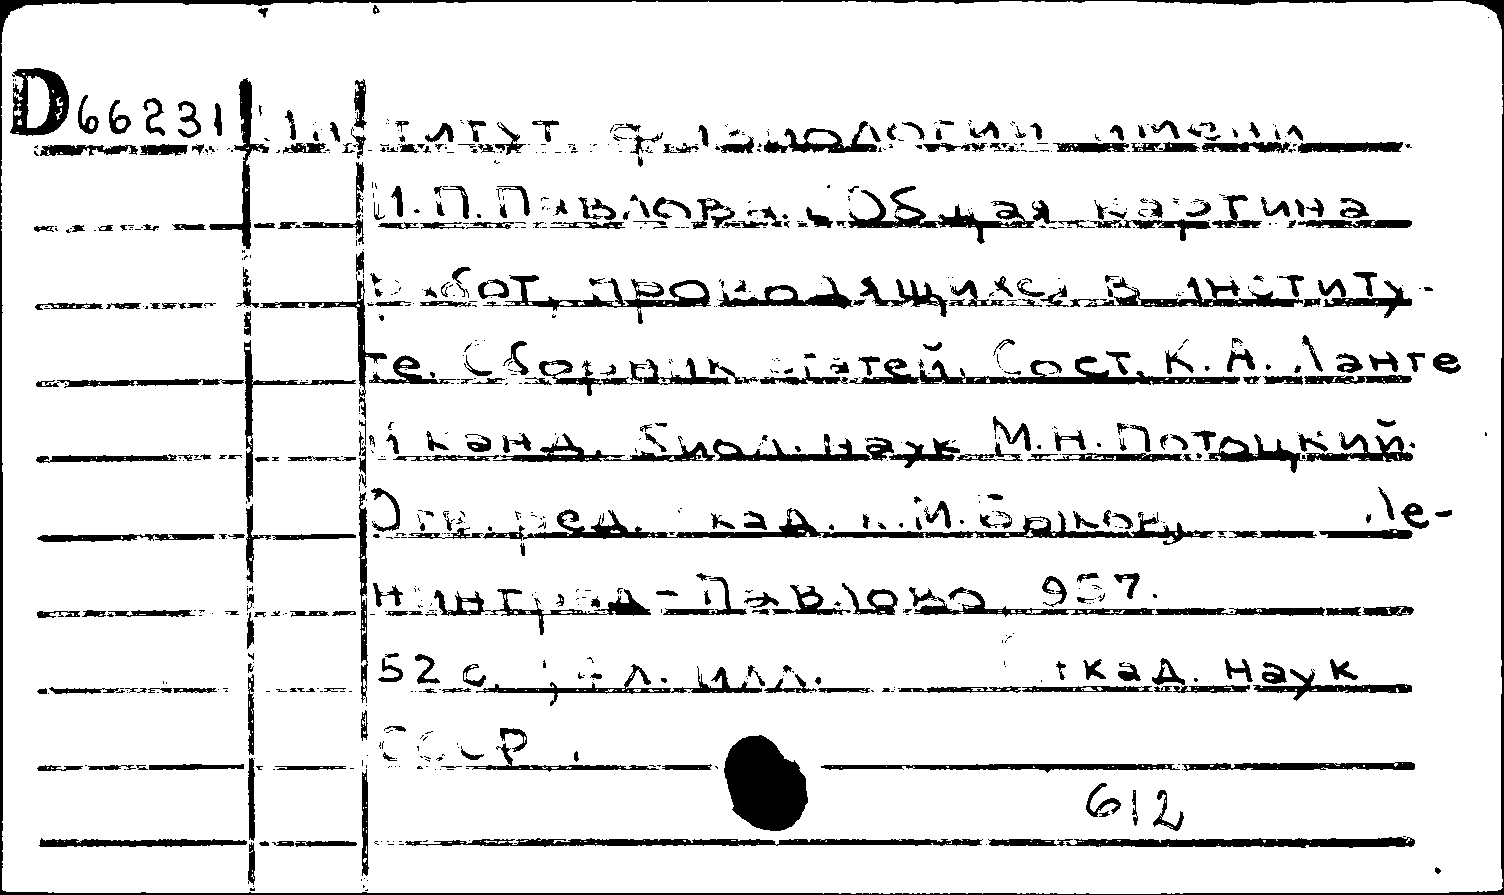 D66231 Институт физиологии имени
И.П.Павлова. Общая картина
работ, проводящихся в институ-
те. Сборник статей. Сост. К.А. Ланге
и канд. биол. наук М.Н.Потоцкий.
Отв. ред. акад. К.М.Быков, Ле-
нинград-Павлово 957.
52 с. ; л. илл. Акад. наук
СССР.
612